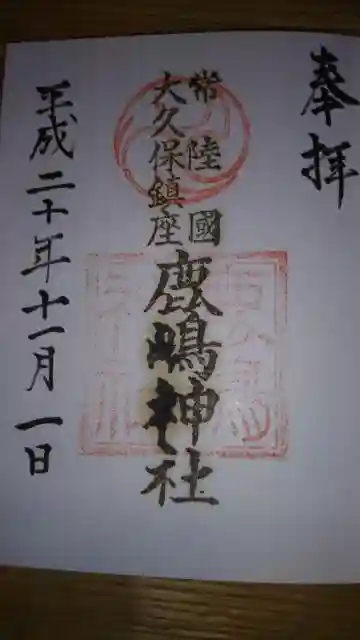 奉拝
常陸國
大久保鎮座
鹿嶋神社
平成二十年十一月一日